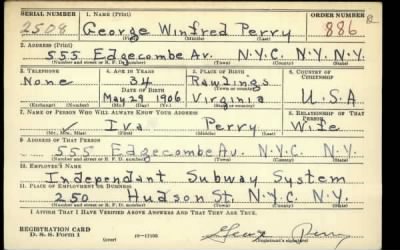 SERIAL NUMBER 1. NAME (Print) ORDER NUMBER
2508 George Winfred Perry 886
(First) (Middle) (Last)
2. ADDRESS (Print)
555 Edgecombe Av. N.Y.C. N.Y. N.Y.
(Number and street or R. F. D. number) (Town) (County) (State)
3. TELEPHONE 4. AGE IN YEARS 5. PLACE OF BIRTH 6. COUNTRY OF CITIZENSHIP
None 34 Rawlings
DATE OF BIRTH (Town or county)
May 29 1906 Virginia U.S.A
(Exchange) (Number) (Mo.) (Day) (Yr.) (State or country)
7. NAME OF PERSON WHO WILL ALWAYS KNOW YOUR ADDRESS 8. RELATIONSHIP OF THAT PERSON
Iva Perry Wife
(Mr., Mrs., Miss) (First) (Middle) (Last)
9. ADDRESS OF THAT PERSON
555 Edgecombe Av. N.Y.C. N.Y.
(Number and street or R. F. D. number) (Town) (County) (State)
10. EMPLOYER'S NAME
Independant Subway System
11. PLACE OF EMPLOYMENT OR BUSINESS
250 Hudson St. N.Y.C. N.Y.
(Number and street or R. F. D. number) (Town) (County) (State)
I AFFIRM THAT I HAVE VERIFIED ABOVE ANSWERS AND THAT THEY ARE TRUE.
REGISTRATION CARD
D. S. S. Form 1 (over) George Perry
(Registrant's signature)